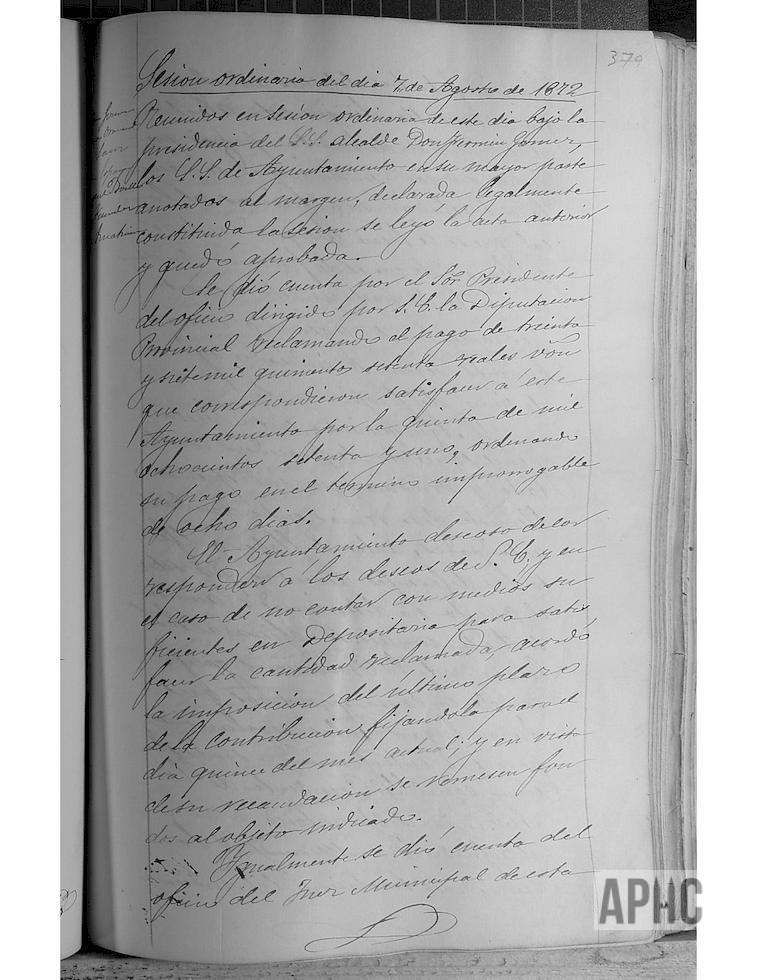 379
Sesion ordinaria del dia 7 de Agosto de 1872
Reunidos en sesion ordinaria de este dia bajo la
presidencia del S.S. alcalde Don Fermin Gomez,
los S.S. de Ayuntamiento en su mayor parte
anotados al margen, declarada legalmente
constituida la sesion se leyó la acta anterior
y quedo aprobada.
Se dió cuenta por el Sor. Presidente
del oficio dirigido por S. E. la Diputacion
Provincial reclamando el pago de treinta
y siete mil quinientos setenta reales von
que correspondieron satisfacer á este
Ayuntamiento por la quinta de mil
ochocientos setenta y uno, ordenando
su pago en el termino improrrogable
de ocho dias.
El Ayuntamiento deseoso de cor
responder á los deseos de S. E. y en
el caso de no contar con medios su
ficientes en Depositaria para satis
facer la cantidad reclamada, acordó
la imposicion del último plazo
de la contribucion fijandola para el
dia quince del mes actual; y en vista
de su recaudacion se remesen fon
dos al objeto indicado.
Ygualmente se dió cuenta del
oficio del Juez Municipal de esta
APHC